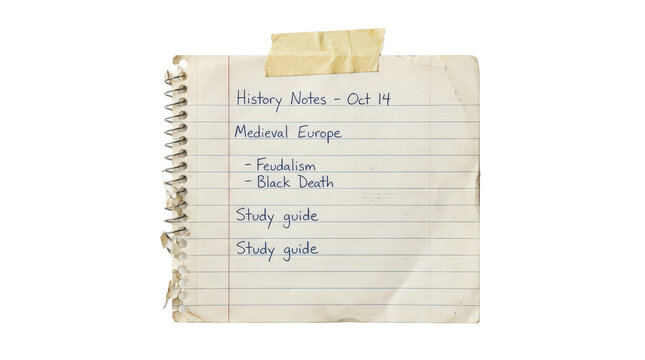 History Notes - Oct 14
Medieval Europe
- Feudalism
- Black Death
Study guide
Study guide